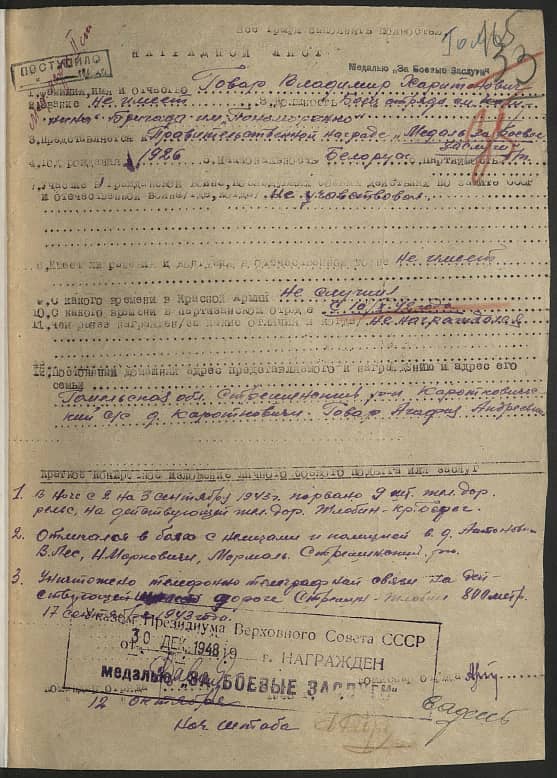 Все графы заполнять полностью.
НАГРАДНОЙ ЛИСТ
ПОСТУПИЛО
Медалью „За Боевые Заслуги"
33
1. Фамилия, имя и отчество Товар Владимир Харитонович
2. Звание Не имеет 3. Должность Боец отряда им.
бригада им. Пономаренко
3. Представляется к Правительственной награде „Медаль за боевые
заслуги"
4. Год рождения 1926 5. Национальность Белорус партийность
7. Участие в гражданской войне, последующих боевых действиях по защите СССР
и отечественной войне /где, когда/ Не участвовал
8. Имеет ли ранения и контузии в отечественной войне Не имеет
9. С какого времени в Красной Армии Не служил
10. С какого времени в партизанском отряде
11. Чем ранее награжден /за какие отличия и когда/ Не награждался
12. Постоянный домашний адрес представляемого к награждению и адрес его
семьи
Гомельская обл. Стрешинский р-н Короткович
ский с/с д. Коротковичи. Товар Агафия Андреевна
Краткое конкретное изложение личного боевого подвига или заслуг
1. В ночь с 2 на 3 сентября 1943 г. порвано 9 шт. жел. дор.
рельс, на действующей жел. дор. Жлобин-
2. Отличался в боях с немцами и полицией в д. Антоновка
В. Лес, Н. Марковичи, Мормаль Стрешинский р-н
3. Уничтожено телефонно телеграфной связи на дей
ствующей дороге Стрешин-Жлобин 800 метр.
17 сентября 1943 года.
Указом Президиума Верховного Совета СССР
от 30 ДЕК 1948 19 г. НАГРАЖДЕН
медалью „ЗА БОЕВЫЕ ЗАСЛУГИ"
Командир отряда
Комиссар отряда
12 октября
Нач штаба